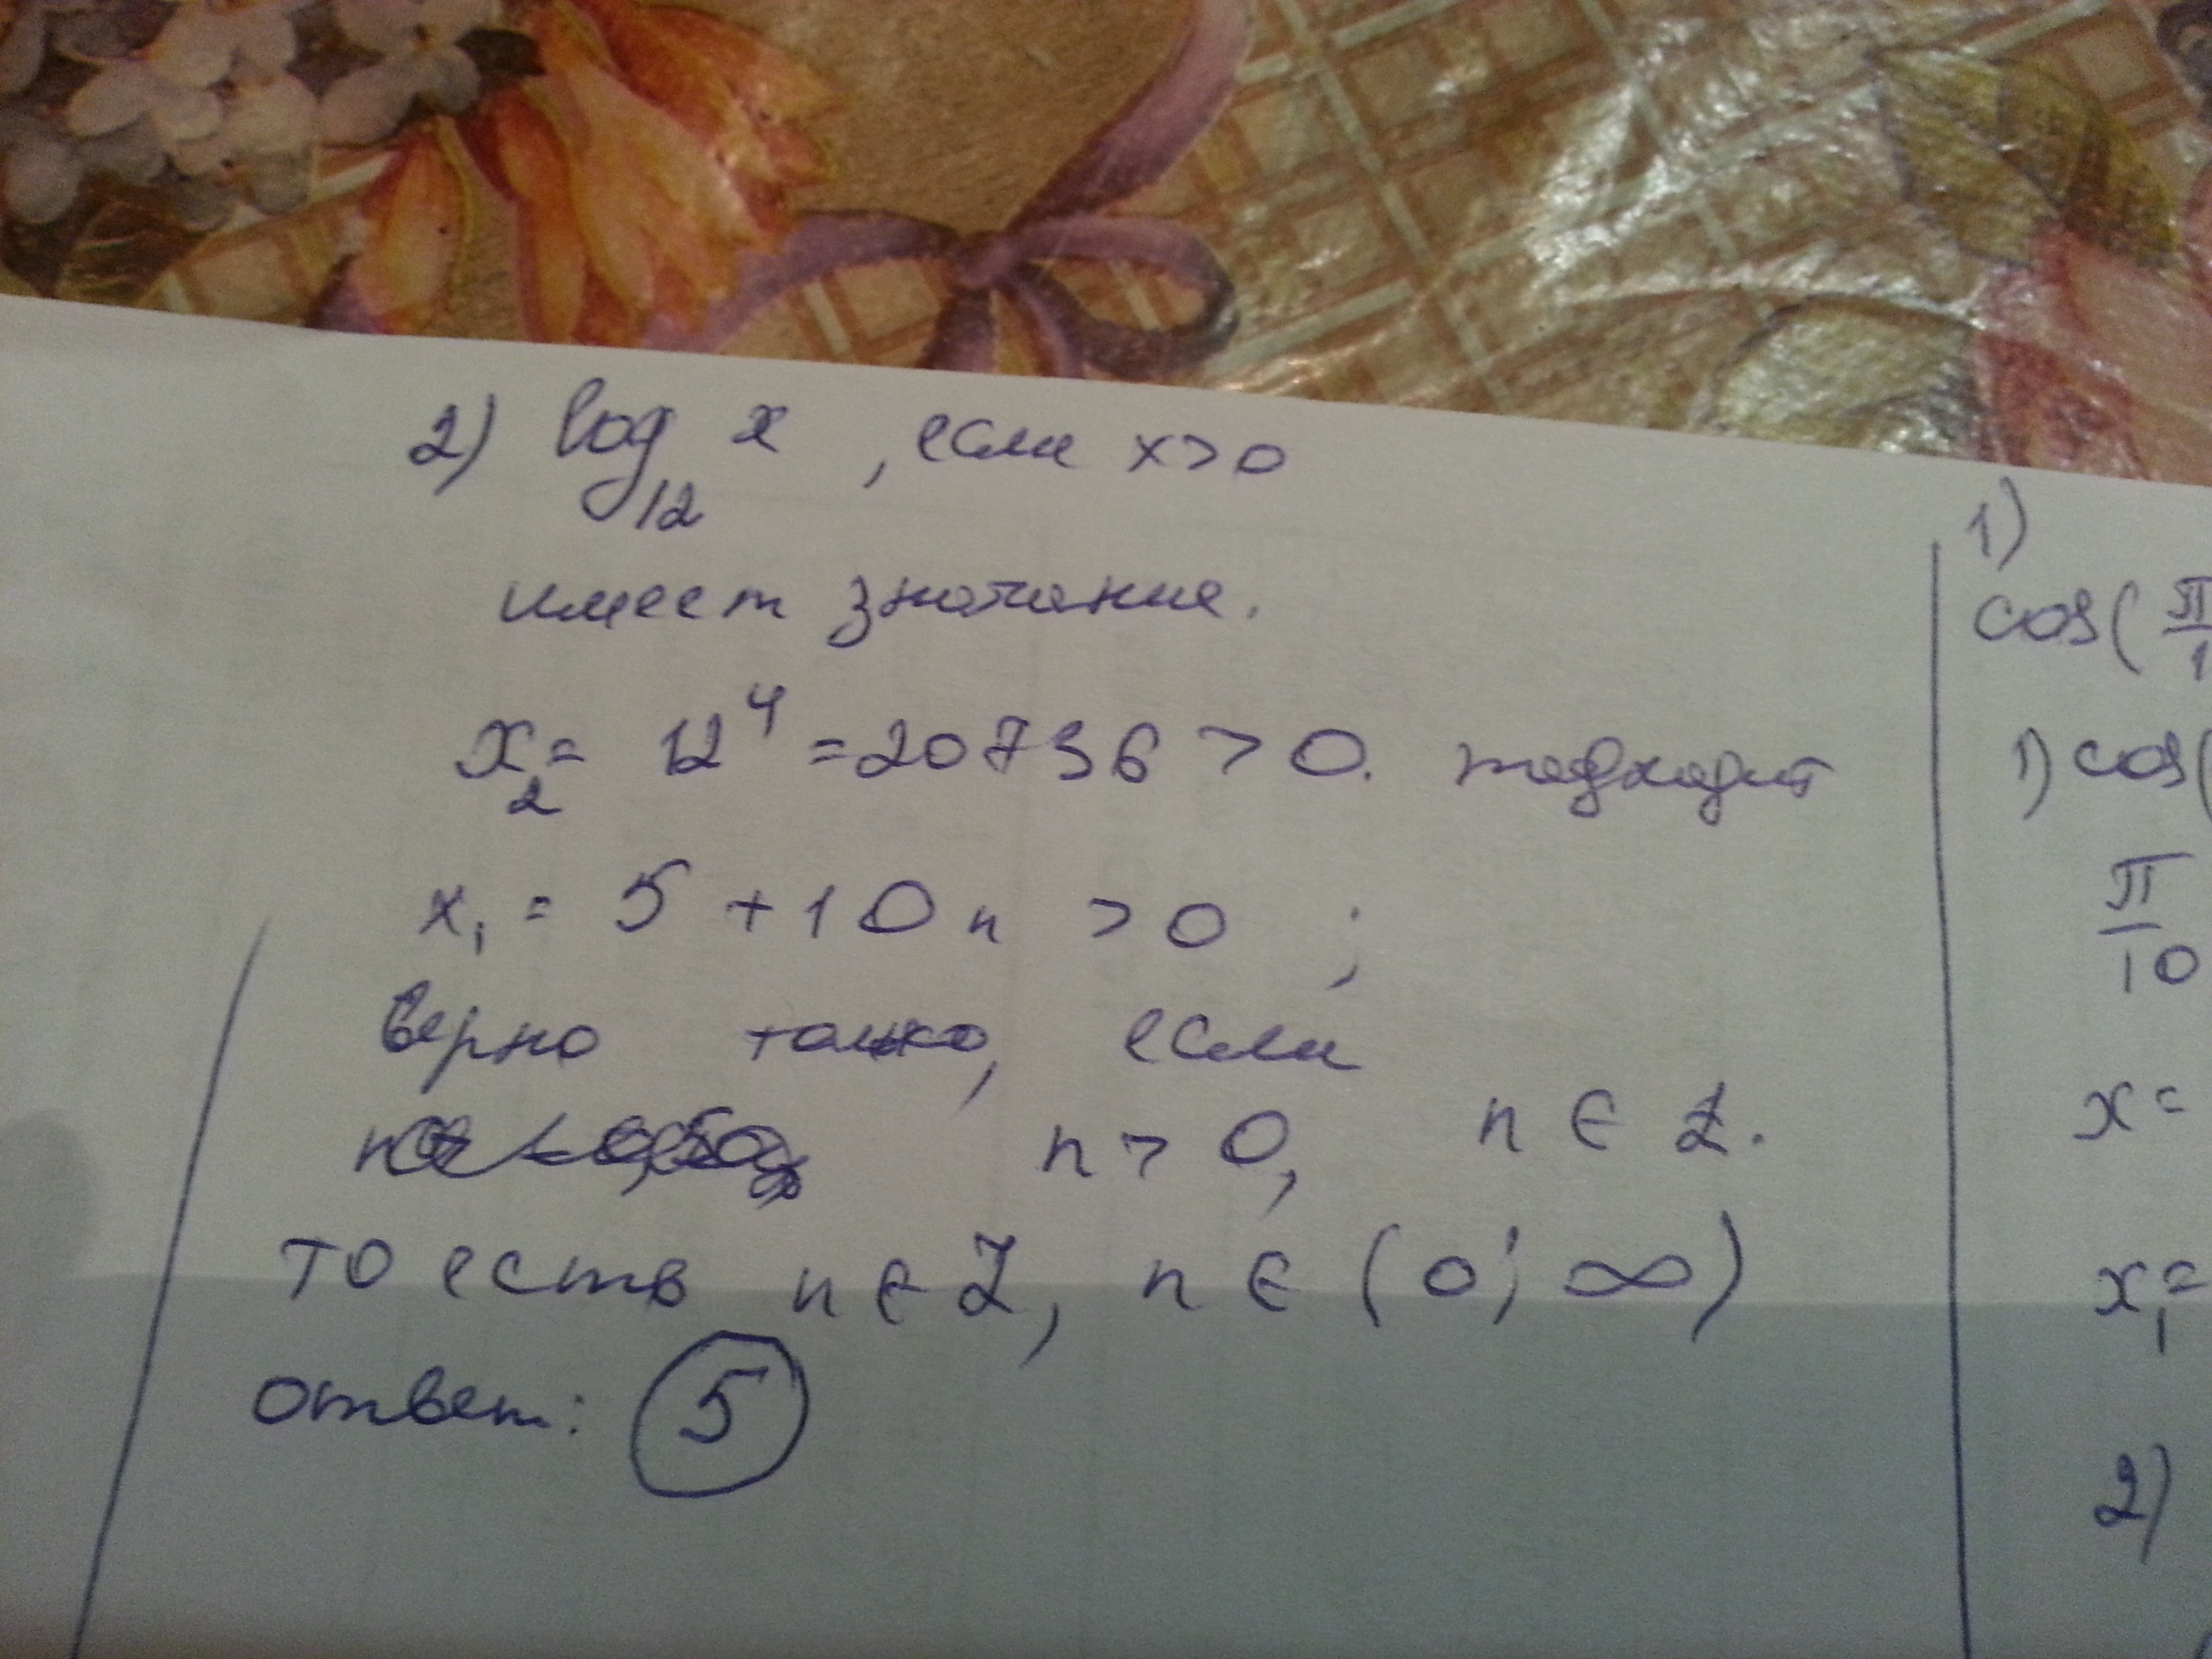 2) log₁₂ x , если x>0
имеет значение.
x₂= 12⁴ =20736 >0. подходит
x₁ = 5 +10n >0 ;
верно только, если
n > 0, n ∈ Z.
то есть n ∈ Z, n ∈ (0; ∞)
ответ: 5
1)
cos( π
1
1) cos(
π
10
x=
x₁=
2)